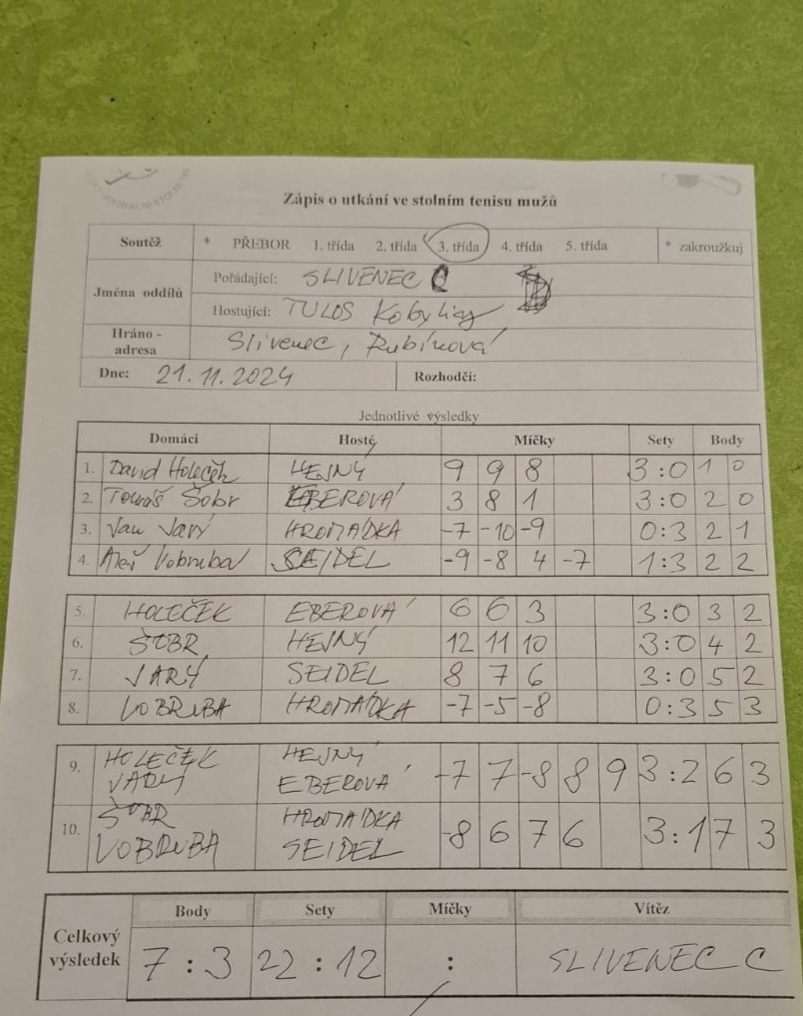 Zápis o utkání ve stolním tenisu mužů
Soutěž * PŘEBOR 1. třída 2. třída 3. třída 4. třída 5. třída * zakroužkuj
Jména oddílů
Pořádající: SLIVENEC C
Hostující: TULOS Kobylisy
Hráno - adresa Slivenec, Rubínová
Dne: 21.11.2024 Rozhodčí:
Jednotlivé výsledky
Domácí Hosté Míčky Sety Body
1. David Holeček HEJNÝ 9 9 8 3:0 1 0
2. Tomáš Šobr EBEROVÁ 3 8 1 3:0 2 0
3. Jan Jarý HROMÁDKA -7 -10 -9 0:3 2 1
4. Aleš Vobruba SEIDEL -9 -8 4 -7 1:3 2 2
5. HOLEČEK EBEROVÁ 6 6 3 3:0 3 2
6. ŠOBR HEJNÝ 12 11 10 3:0 4 2
7. JARÝ SEIDEL 8 7 6 3:0 5 2
8. VOBRUBA HROMÁDKA -7 -5 -8 0:3 5 3
9. HOLEČEK HEJNÝ -7 7 -8 8 9 3:2 6 3
JARÝ EBEROVÁ
10. ŠOBR HROMADKA -8 6 7 6 3:1 7 3
VOBRUBA SEIDEL
Celkový výsledek
Body Sety Míčky Vítěz
7:3 22:12 : SLIVENEC C